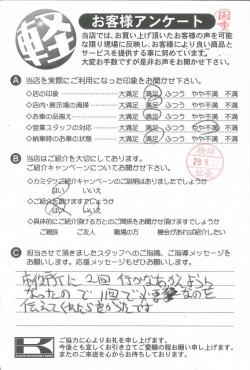 軽
お客様アンケート
当店では、お買い上げ頂いたお客様の声を可能
な限り現場に反映し、お客様により良い商品と
サービスを提供する事に努めています。
大変お手数ですが是非お声をお聞かせ下さい。
A 当店を実際にご利用になった印象をお聞かせ下さい。
◇店の印象 大満足 満足 ふつう やや不満 不満
◇店内・展示場の清掃 大満足 満足 ふつう やや不満 不満
◇お車の品揃え 大満足 満足 ふつう やや不満 不満
◇営業スタッフの対応 大満足 満足 ふつう やや不満 不満
◇納車時のお車の状態 大満足 満足 ふつう やや不満 不満
B 当店はご紹介を大切にしております。
ご紹介キャンペーンについてお聞かせ下さい。
◇カミタケご紹介キャンペーンのご説明はありましたでしょうか
はい いいえ
◇ご紹介を頂けますでしょうか
はい いいえ
◇具体的にご紹介頂ける方とのご関係をお聞かせ頂けますでしょうか
ご親族 ご友人 職場の方 機会があれば紹介したい
C 担当させて頂きましたスタッフへのご指摘、ご導入メッセージを
お願いします。応援メッセージもぜひお願いします。
市役所に2回行かなあかんように
なったので1回で
伝えてくれたらをかったです
K
ご協力に心よりお礼を申し上げます。
今後とも宜しくお引き立てご愛顧の程お願い申し上げます。
またのご来店を心からお待ちしております。